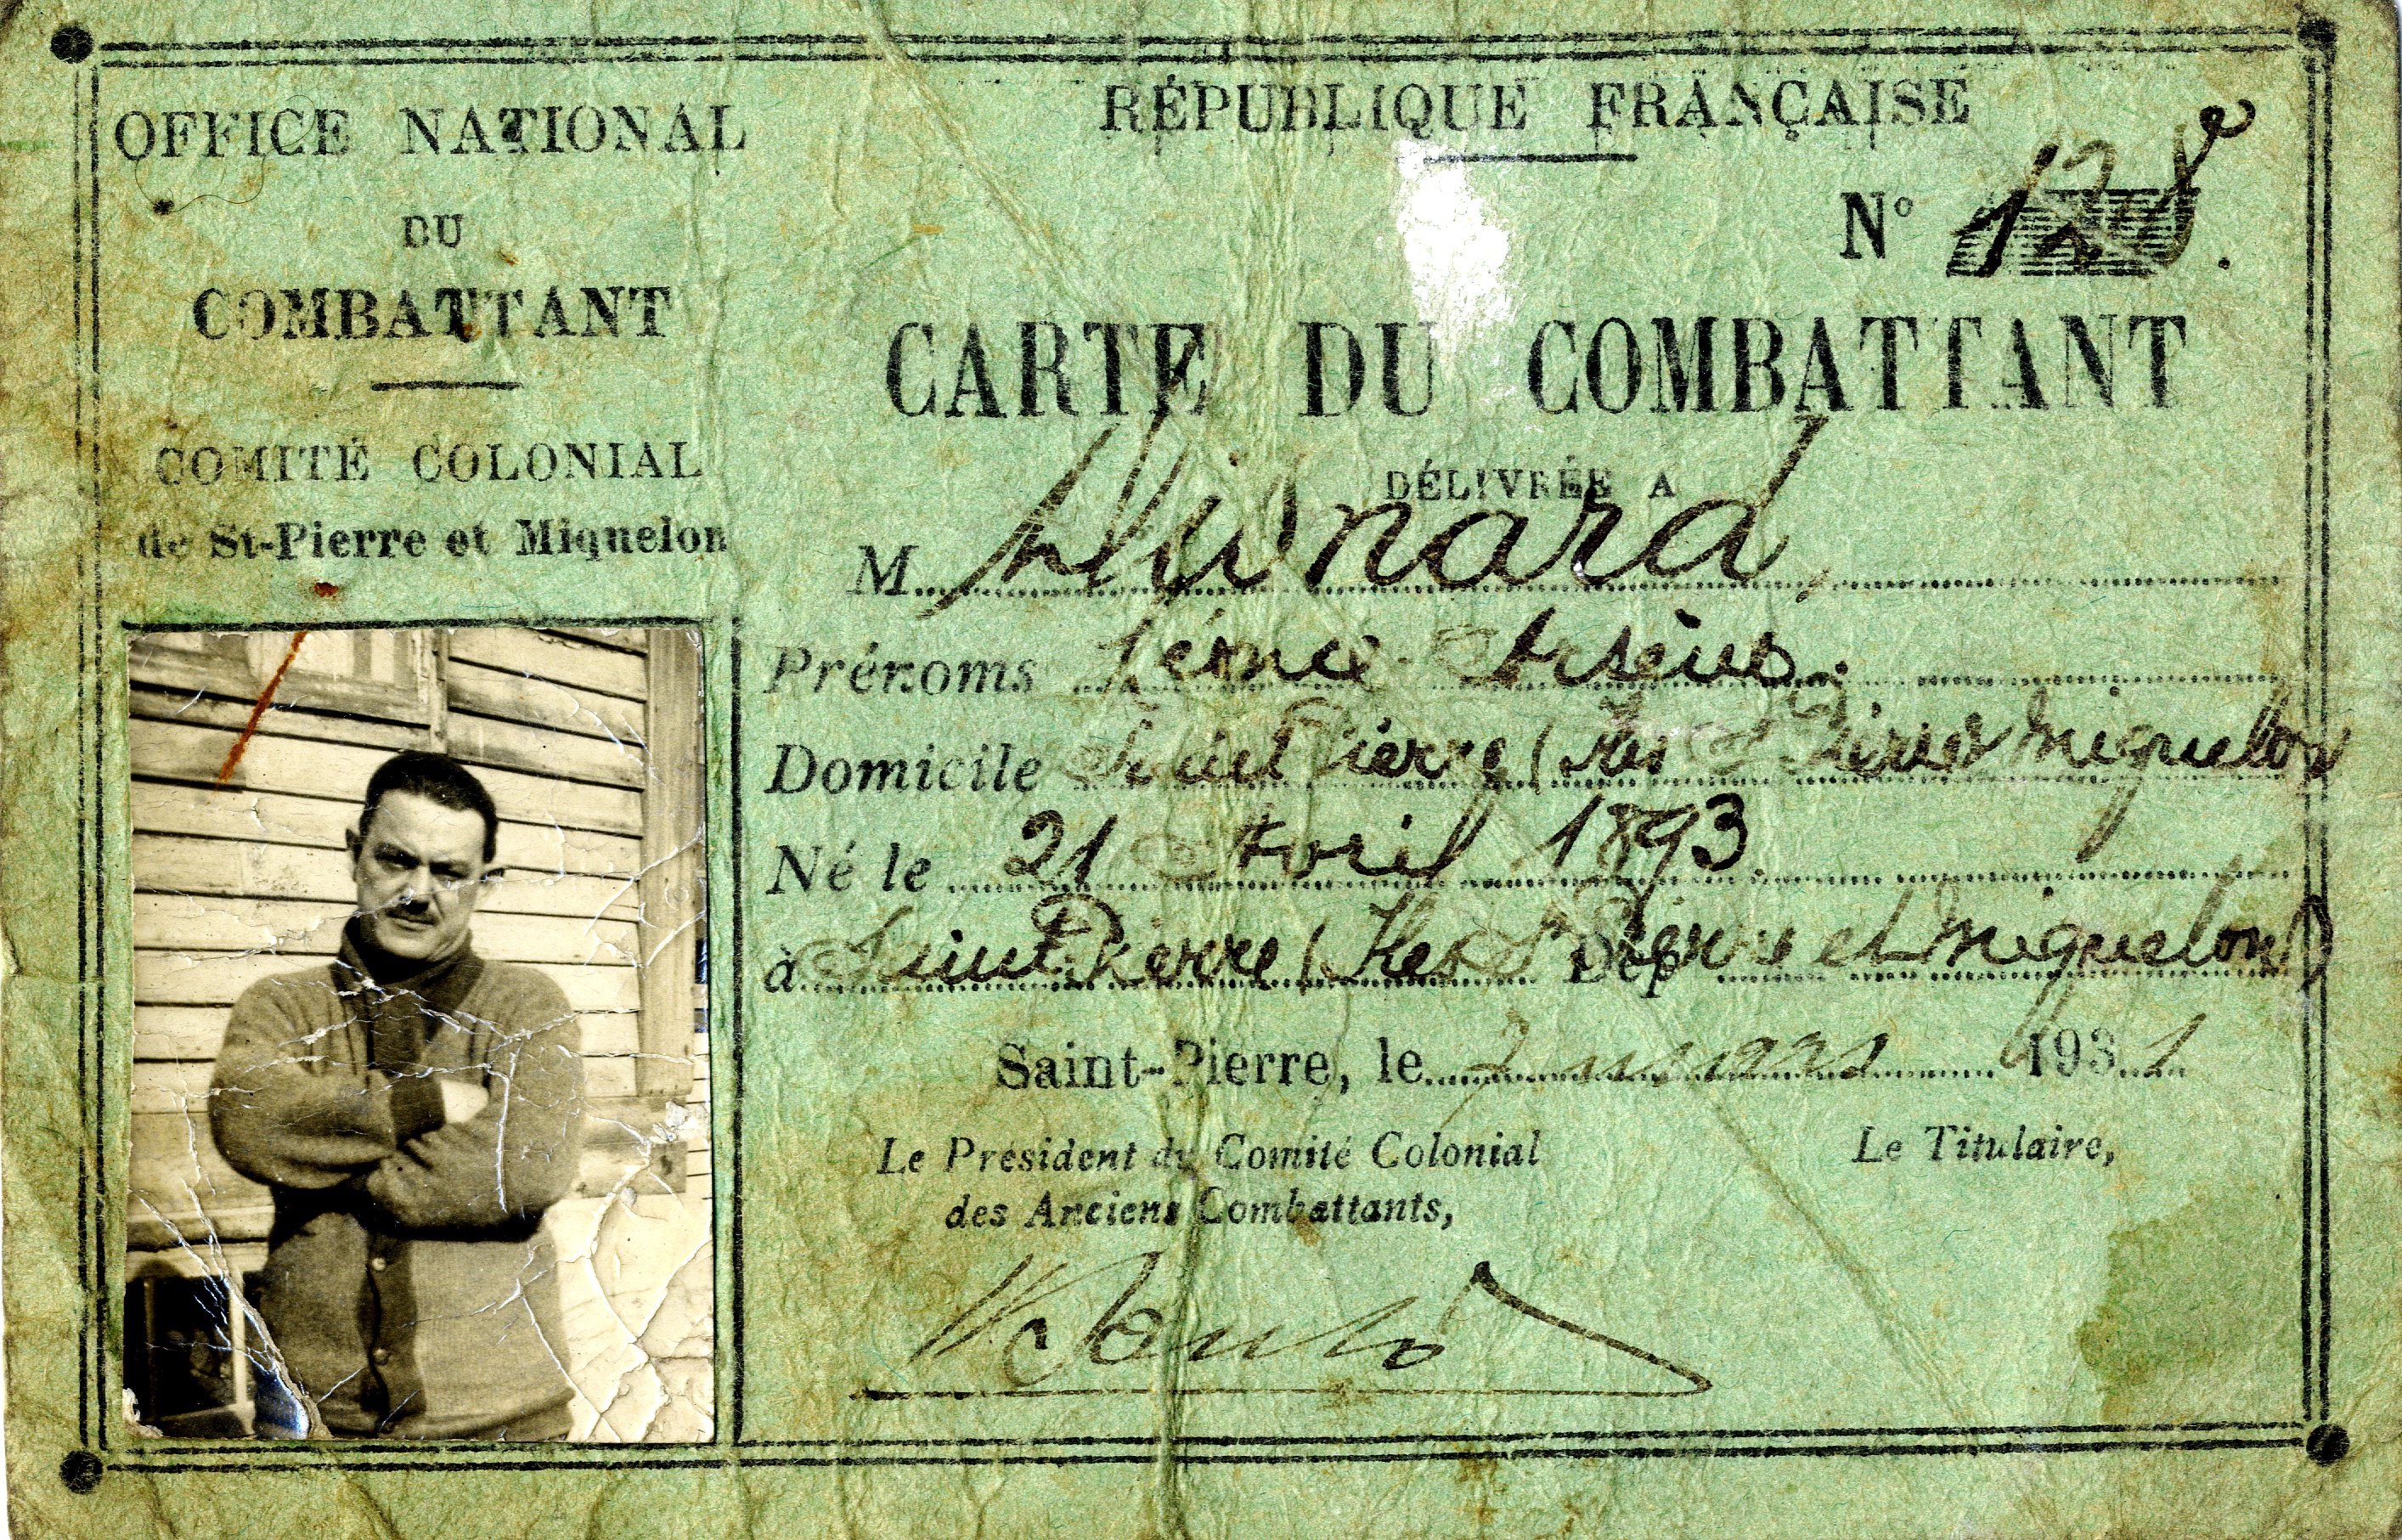 OFFICE NATIONAL
DU
COMBATTANT
COMITÉ COLONIAL
de St-Pierre et Miquelon
RÉPUBLIQUE FRANÇAISE
N° 128e
CARTE DU COMBATTANT
DÉLIVRÉE A
M
Prénoms Léonce Arsène.
Domicile Saint Pierre (Iles St Pierre Miquelon
Né le 21 Avril 1893.
à Saint Pierre (Iles St Dép Pierre et Miquelon)
Saint-Pierre, le 2 mars 1931
Le Président du Comité Colonial
des Anciens Combattants,
Le Titulaire,